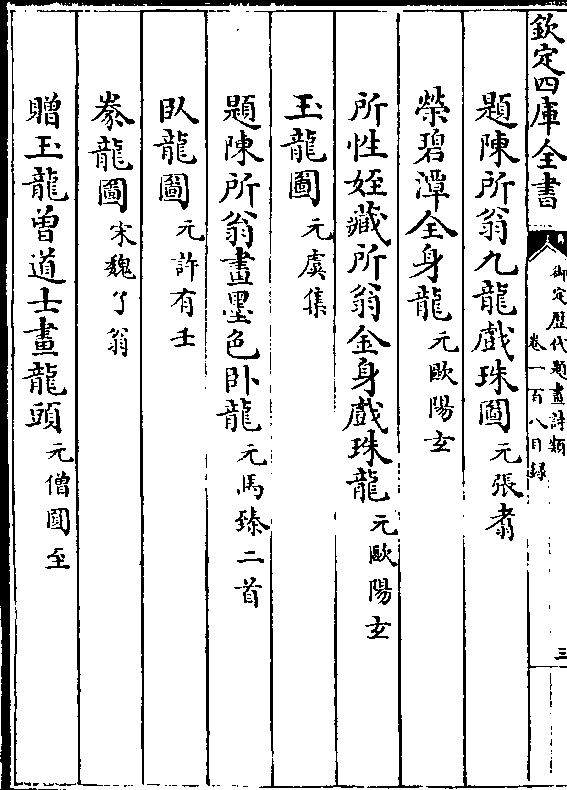 欽定四庫全書
御定歷代題畫詩類
卷一百八目錄
三
題陳所翁九龍戲珠圖 元張翥
榮碧潭全身龍 元歐陽玄
所性姪藏所翁全身戲珠龍 元歐陽玄
玉龍圖 元虞集
題陳所翁畫墨色卧龍 元馬臻二首
臥龍圖 元許有壬
豢龍圖 宋魏了翁
贈玉龍曾道士畫龍頭 元僧圓至